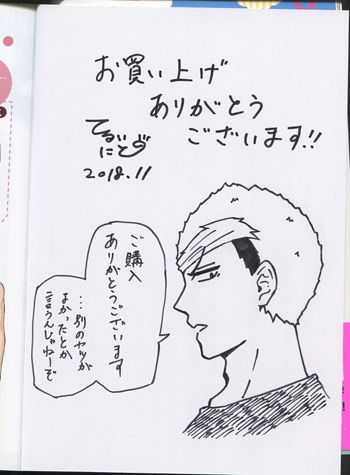 お買い上げ
ありがとう
ございます!!
てるい
にとろ
2018.11
ご購入
ありがとうございます
…別のヤツが
よかったとか
言うんじゃねーぞ